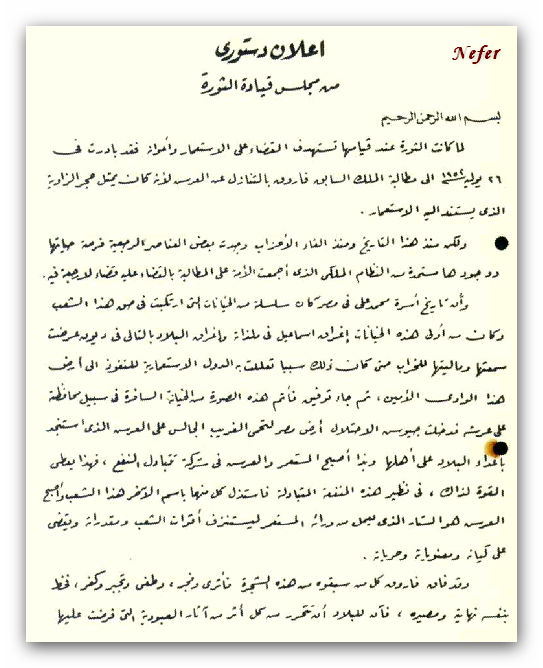 اعلان دستورى
Nefer
من مجلس قيادة الثورة
بسم الله الرحمن الرحيم
لما كانت الثورة عند قيامها تستهدف القضاء على الاستعمار وأعوانه فقد بادرت فى
٢٦ يوليه ١٩٥٢ الى مطالبة الملك السابق فاروق بالتنازل عن العرش لأنه كان يمثل حجر الزاوية
الذى يستند اليه الاستعمار .
ولكن منذ هذا التاريخ ومنذ الغاء الأحزاب وجدت بعض العناصر الرجعية فرصة حياتها
ووجودها مستمدة من النظام الملكى الذى أجمعت الأمة على المطالبة بالقضاء عليه قضاء لا رجعة فيه .
وأن تاريخ أسرة محمد على فى مصر كان سلسلة من الخيانات التى ارتكبت فى حق هذا الشعب
وكان من أولى هذه الخيانات إغراق اسماعيل فى ملذاته وإغراق البلاد بالتالى فى ديون عرضت
سمعتها وماليتها للخراب حتى كان ذلك سببا تعللت به الدول الاستعمارية للنفوذ الى أرض
هذا الوادى الأمين ، ثم جاء توفيق فأتم هذه الصورة من الخيانة السافرة فى سبيل محافظة
على عرشه فدخلت جيوش الاحتلال أرض مصر لتحمى الغريب الجالس على العرش الذى استنجد
بأعداء البلاد على أهلها وبذا أصبح المستعمر والعرش فى شركة تتبادل النفع ، فهذا يعطى
القوة لذاك ، فى نظير هذه المنفعة المتبادلة فاستذل كل منهما باسم الآخر هذا الشعب وأصبح
العرش هو الستار الذى يعمل من ورائه المستعمر ليستنزف أقوات الشعب ومقدراته ويقضى
على كيانه ومعنوياته وحرياته .
وقد فاق فاروق كل من سبقوه من هذه الشجرة فأثرى وفجر ، وطغى وتجبر وكفر ، فخط
بنفسه نهايته ومصيره ، فآن للبلاد أن تتحرر من كل أثر من آثار العبودية التى فرضت عليها